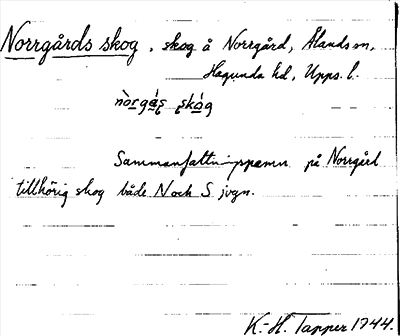 Norrgårds skog, skog å Norrgård, Ålands sn,
Hagunda hd, Upps. l.
nòrgás skóg
Sammanfattningsnamn på Norrgård
tillhörig skog både N och S jvgn.
K.-H. Tapper 1944.